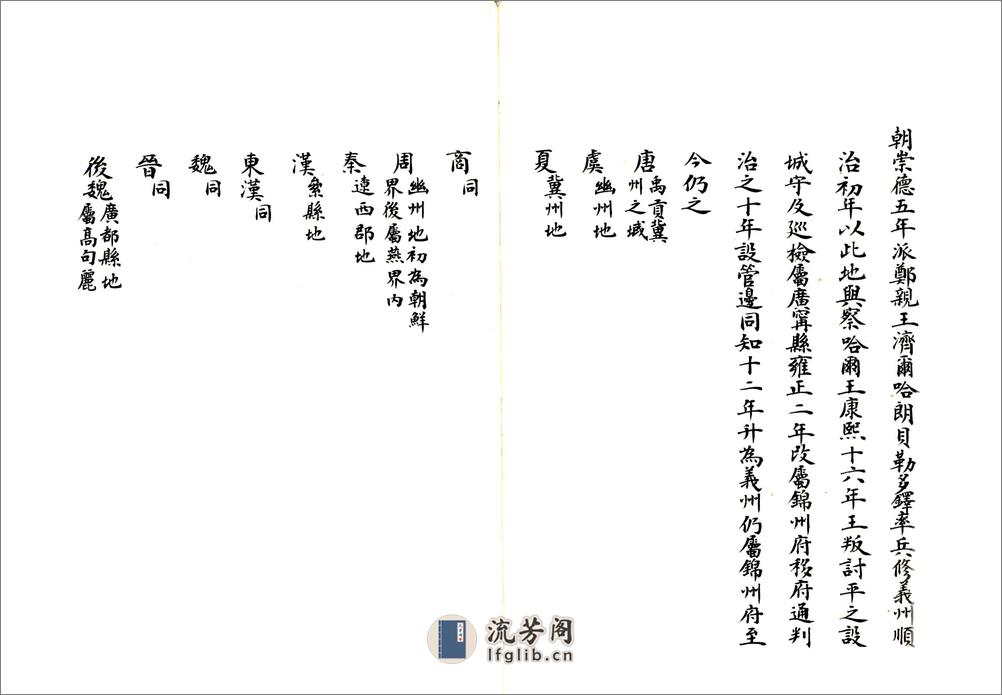 朝崇德五年派鄭親王濟爾哈朗貝勒多鐸率兵修義州順
治初年以此地與察哈爾王康熙十六年王叛討平之設
城守及巡檢屬廣甯縣雍正二年改屬錦州府移府通判
治之十年設管邊同知十二年升為義州仍屬錦州府至
今仍之
唐禹貢冀
州之域
虞幽州地
夏冀州地
商同
周幽州地初為朝鮮
界後屬燕界內
秦遼西郡地
漢絫縣地
東漢同
魏同
晉同
後魏廣都縣地
屬高句麗
流芳阁
lfglib.cn